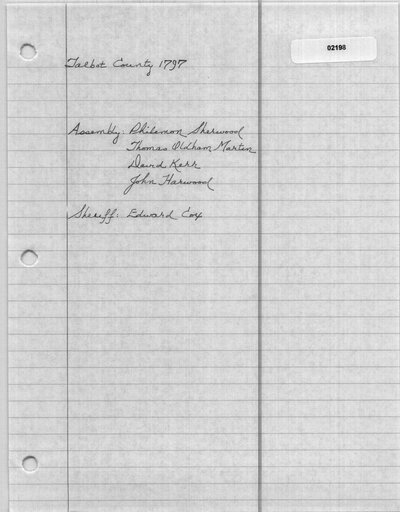 02198
Talbot County 1797
Assembly: Philemon Sherwood
Thomas Oldham Martin
David Kerr
John Harwood
Sheriff: Edward Cox